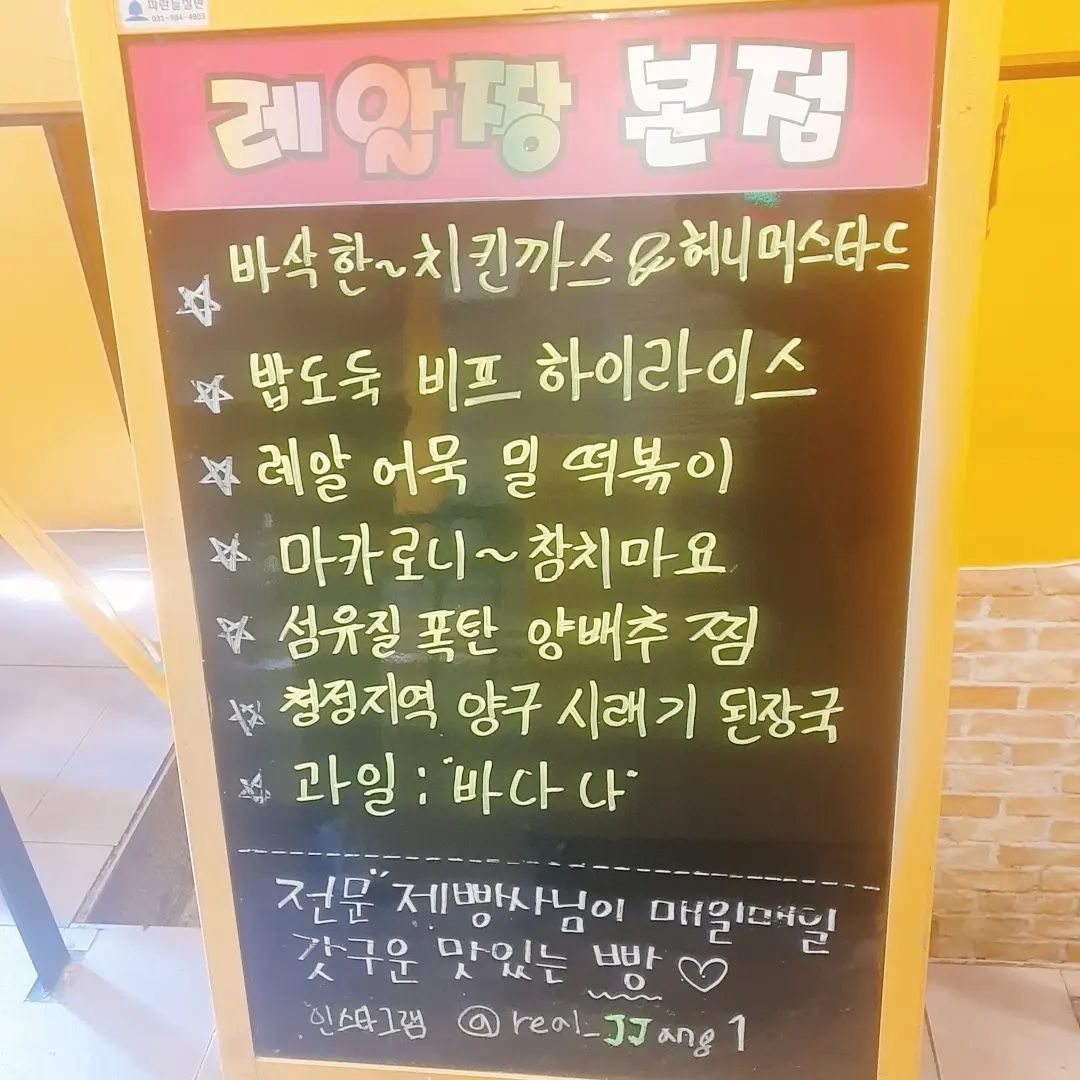 파란들살면
031-984-4903
레알짱 본점
바삭한~치킨까스&허니머스타드
밥도둑 비프 하이라이스
레알 어묵 밀 떡볶이
마카로니~참치마요
섬유질 폭탄 양배추 찜
청정지역 양구 시래기 된장국
과일 : "바나나"
전문"제빵사님이 매일매일
갓구운 맛있는 빵♡
인스타그램 @real_JJang1